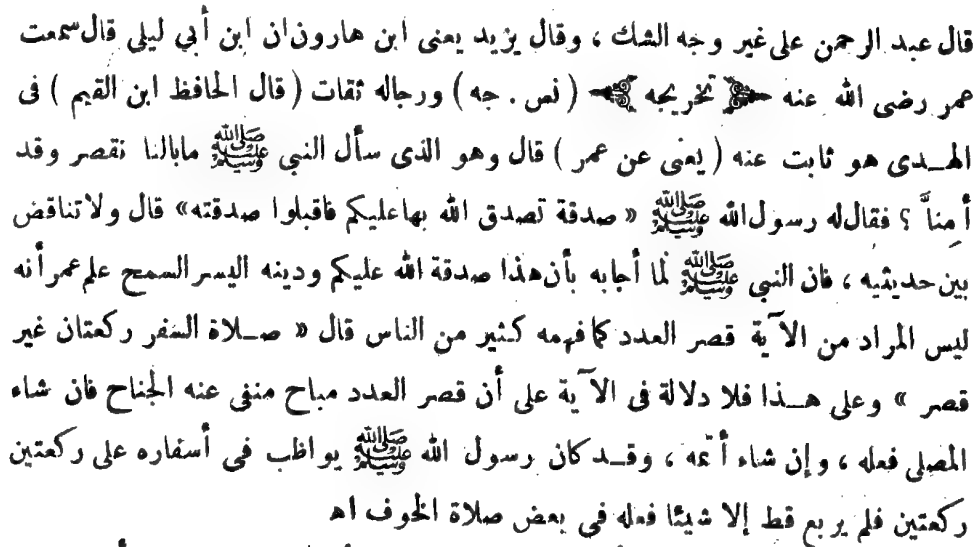 قال عبد الرحمن على غير وجه الشك ، وقال يزيد يعنى ابن هارون ان ابن أبي ليلى قال سمعت
عمر رضى الله عنه تخريجه ( نس . جه ) ورجاله ثقات ( قال الحافظ ابن القيم ) فى
الهدى هو ثابت عنه ( يعنى عن عمر ) قال وهو الذى سأل النبى ﷺ مابالنا نقصر وقد
أمِنَّا ؟ فقال له رسول الله ﷺ « صدقة تصدق الله بها عليكم فاقبلوا صدقته» قال ولا تناقض
بين حديثيه ، فان النبى ﷺ لما أجابه بأن هذا صدقة الله عليكم ودينه اليسر السمح علم عمر أنه
ليس المراد من الآية قصر العدد كما فهمه كثير من الناس قال « صلاة السفر ركعتان غير
قصر » وعلى هذا فلا دلالة فى الآية على أن قصر العدد مباح منفى عنه الجناح فان شاء
المصلى فعله ، وإن شاء أتمه ، وقد كان رسول الله ﷺ يواظب فى أسفاره على ركعتين
ركعتين فلم يربع قط إلا شيئا فعله فى بعض صلاة الخوف اه